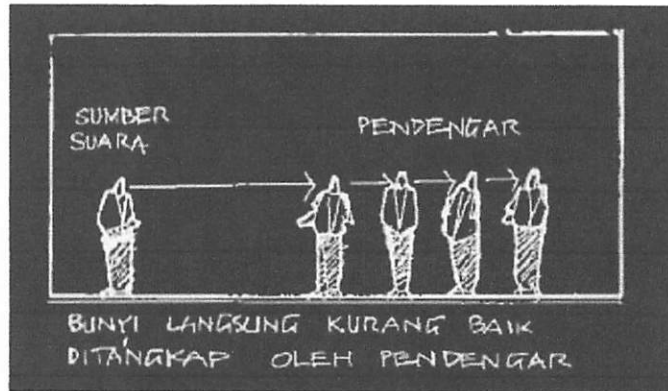 SUMBER
SUARA
PENDENGAR
BUNYI LANGSUNG KURANG BAIK
DITANGKAP OLEH PENDENGAR